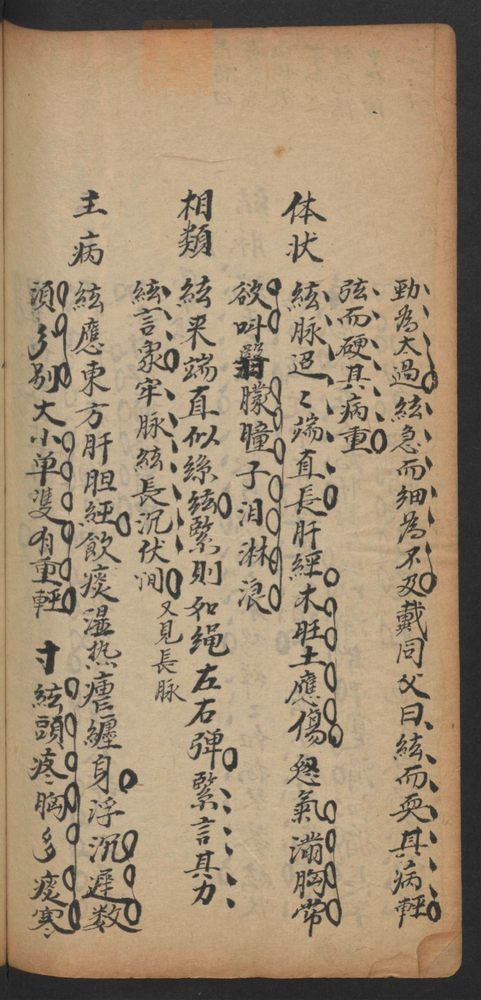 勁為太過絃急而細為不及戴同父曰絃而耎其病輕
弦而硬具病重
体状　絃脉迢〻端直長肝經木旺土應傷怒氣滿胸常
欲叫翳朦瞳子泪淋浪
相類　絃来端直似絲絃緊則如绳左右彈緊言其力
絃言象牢脉絃長沉伏间又見長脉
主病　絃應東方肝胆經飲痰湿热瘧纏身浮沉遲数
須分别大小单雙有重輕　寸絃頭疼胸多痰寒